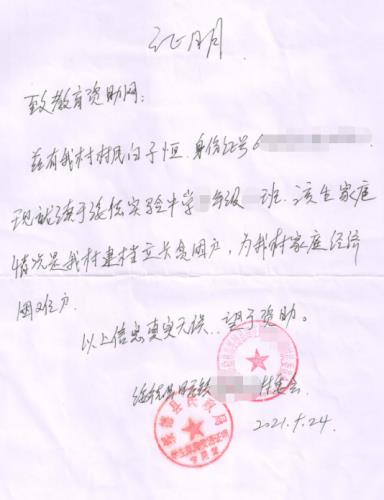 证明
致教育资助网：
兹有我村村民白子恒，身份证号6
现就读于绥德实验中学 年级 班。该生家庭
情况是我村建档立卡贫困户，为我村家庭经济
困难户。
以上信息真实无误，望予资助。
绥德县 村委会
2021.5.24
绥德县民政局
专用章